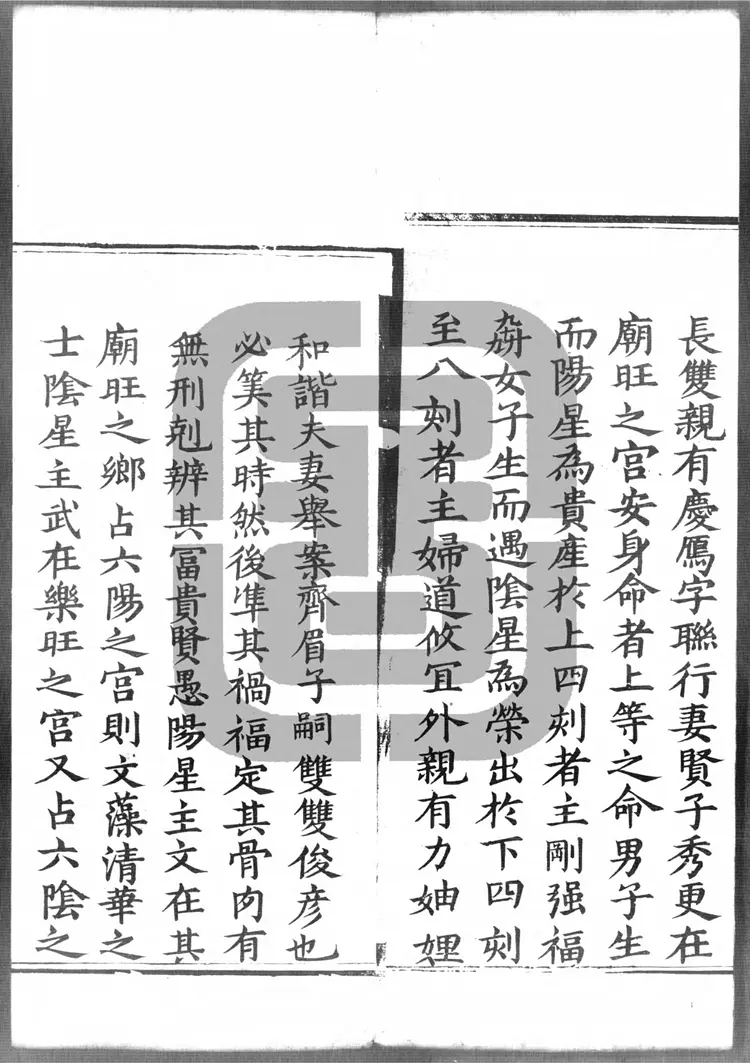 長雙親有慶鴈字聮行妻賢子秀更在
廟旺之宫安身命者上等之命男子生
而陽星為貴產於上四刻者主剛强福
奔女子生而遇陰星為榮出於下四刻
至八刻者主婦道攸冝外親有力妯娌
和諧夫妻舉案齊眉子嗣雙雙俊彦也
必筭其時然後凖其禍福定其骨肉有
無刑剋辨其冨貴賢愚陽星主文在其
廟旺之鄉占六陽之宫則文藻清華之
士陰星主武在樂旺之宫又占六陰之